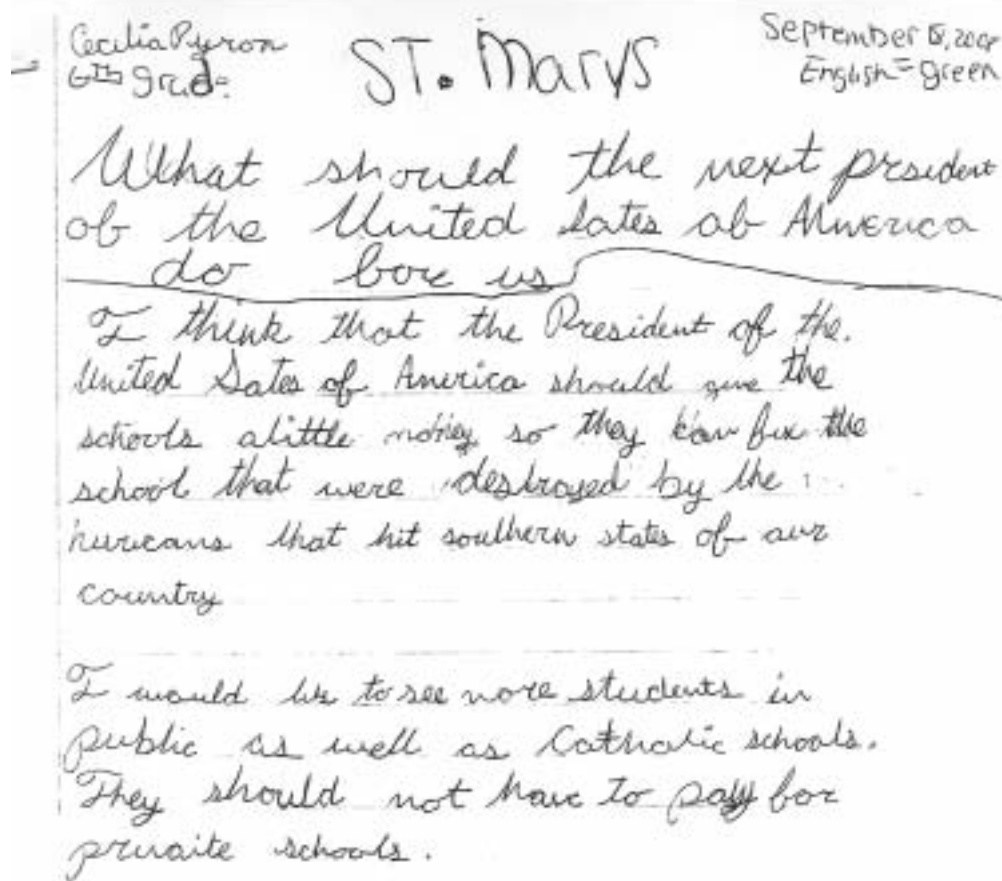 Cecilia Pyron
6th Grade
ST. Marys
September 15, 2008
English = green
What should the next prsident
of the United Sates of America
do for us
I think that the President of the
United Sates of America should give the
schools alittle money so they can fix the
school that were destroyed by the
huricans that hit southern states of our
country
I would like to see more students in
public as well as Catholic schools.
They should not have to pay for
privaite schools.